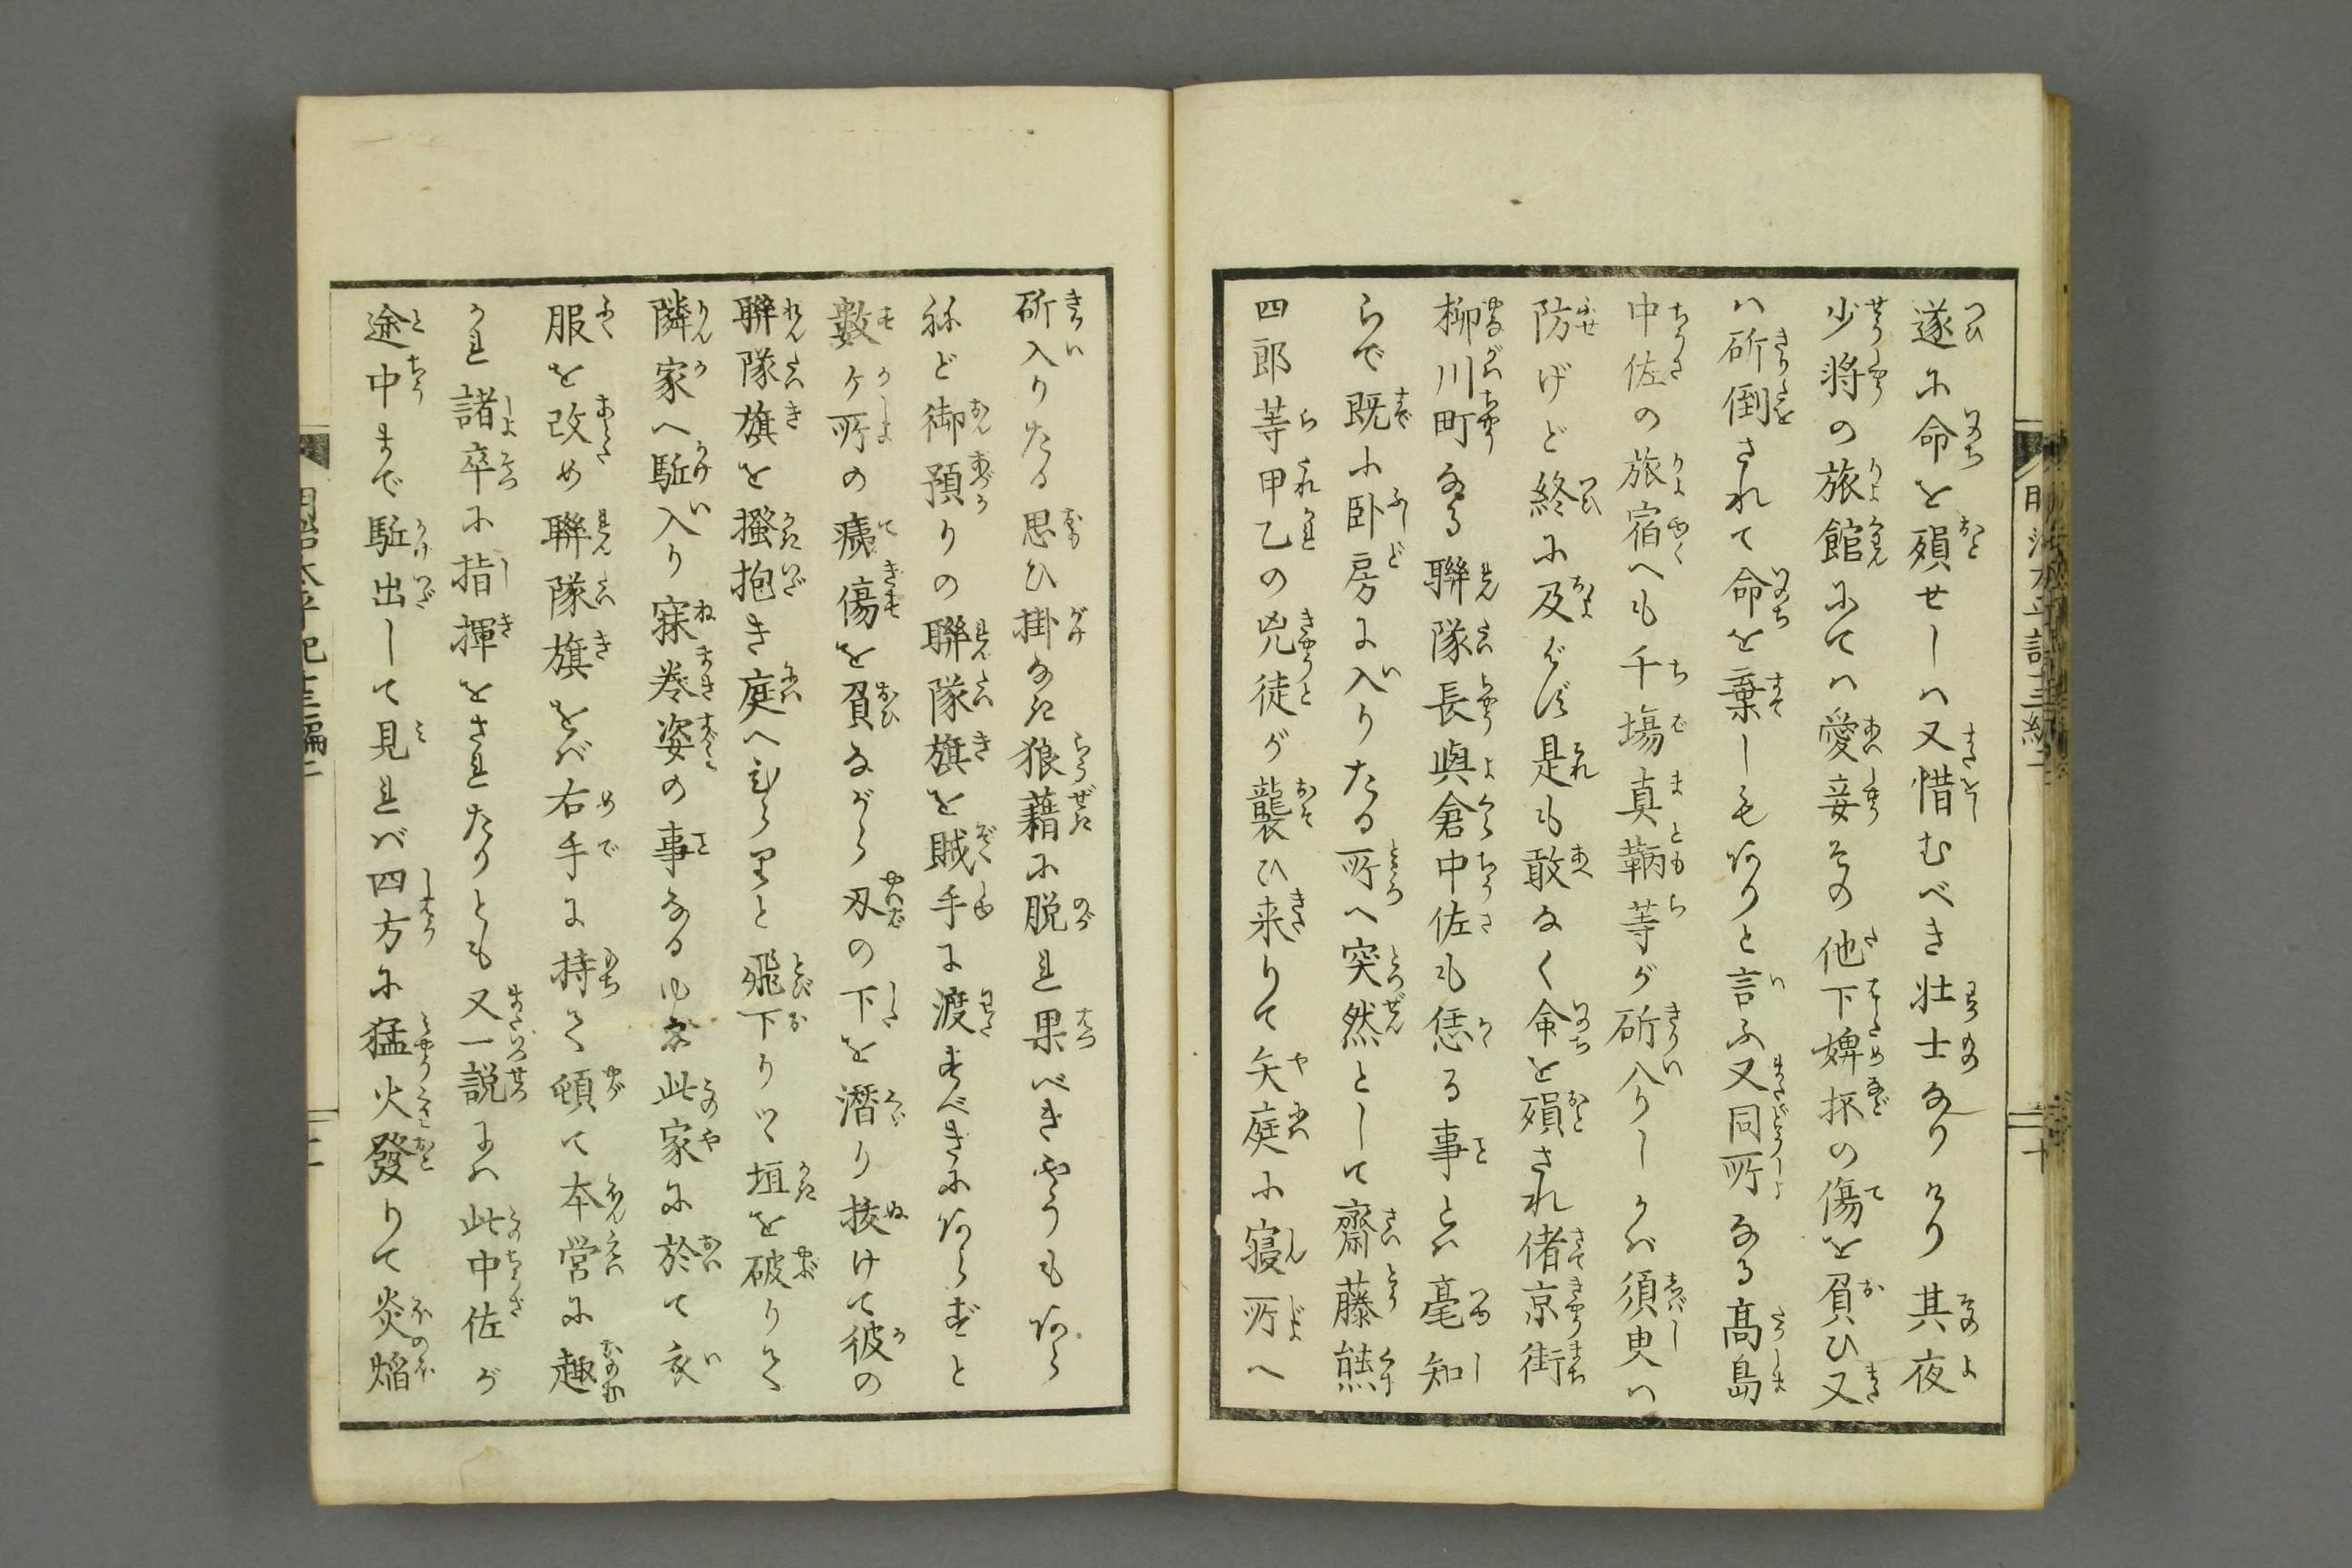 遂に命を殞せしハ又惜むべき壮士なりけり其夜
少将の旅館にてハ愛妾その他下婢抔の傷を負ひ又
ハ斫倒されて命を棄しもありと言ふ又同所なる髙島
中佐の旅宿へも千塲真鞆等が斫入りしかバ須臾ハ
防げど終に及ばず是も敢なく命を殞され偖京街
柳川町なる聯隊長與倉中佐も恁る事とハ毫知
らで既に卧房に入りたる所へ突然として齋藤熊
四郎等甲乙の兇徒が襲ひ来りて矢庭に寝所へ
斫入りたる思ひ掛なき狼藉に脱れ果べきやうもあら
ねど御預りの聯隊旗を賊手に渡すべきにあらずと
數ヶ所の痍傷を負ながら刃の下を潜り抜けて彼の
聯隊旗を搔抱き庭へひらりと飛下りつゝ垣を破りて
隣家へ駈入り寐巻姿の事なるゆゑ此家に於て衣
服を改め聯隊旗をバ右手に持て頓て本営に趣
かれ諸卒に指揮をされたりとも又一説にハ此中佐が
途中まで駈出して見れバ四方に猛火發りて炎焔
明治太平記十三編二
十
明治太平記十三編二
十一